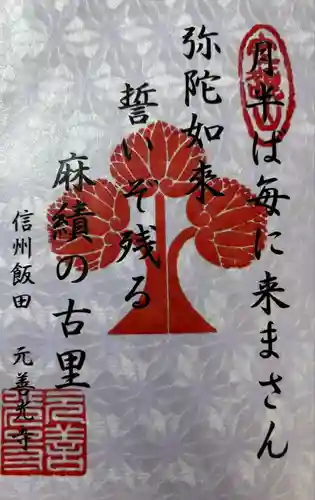 月半ば毎に来まさん
弥陀如来
誓いぞ残る
麻績の古里
信州飯田 元善光寺